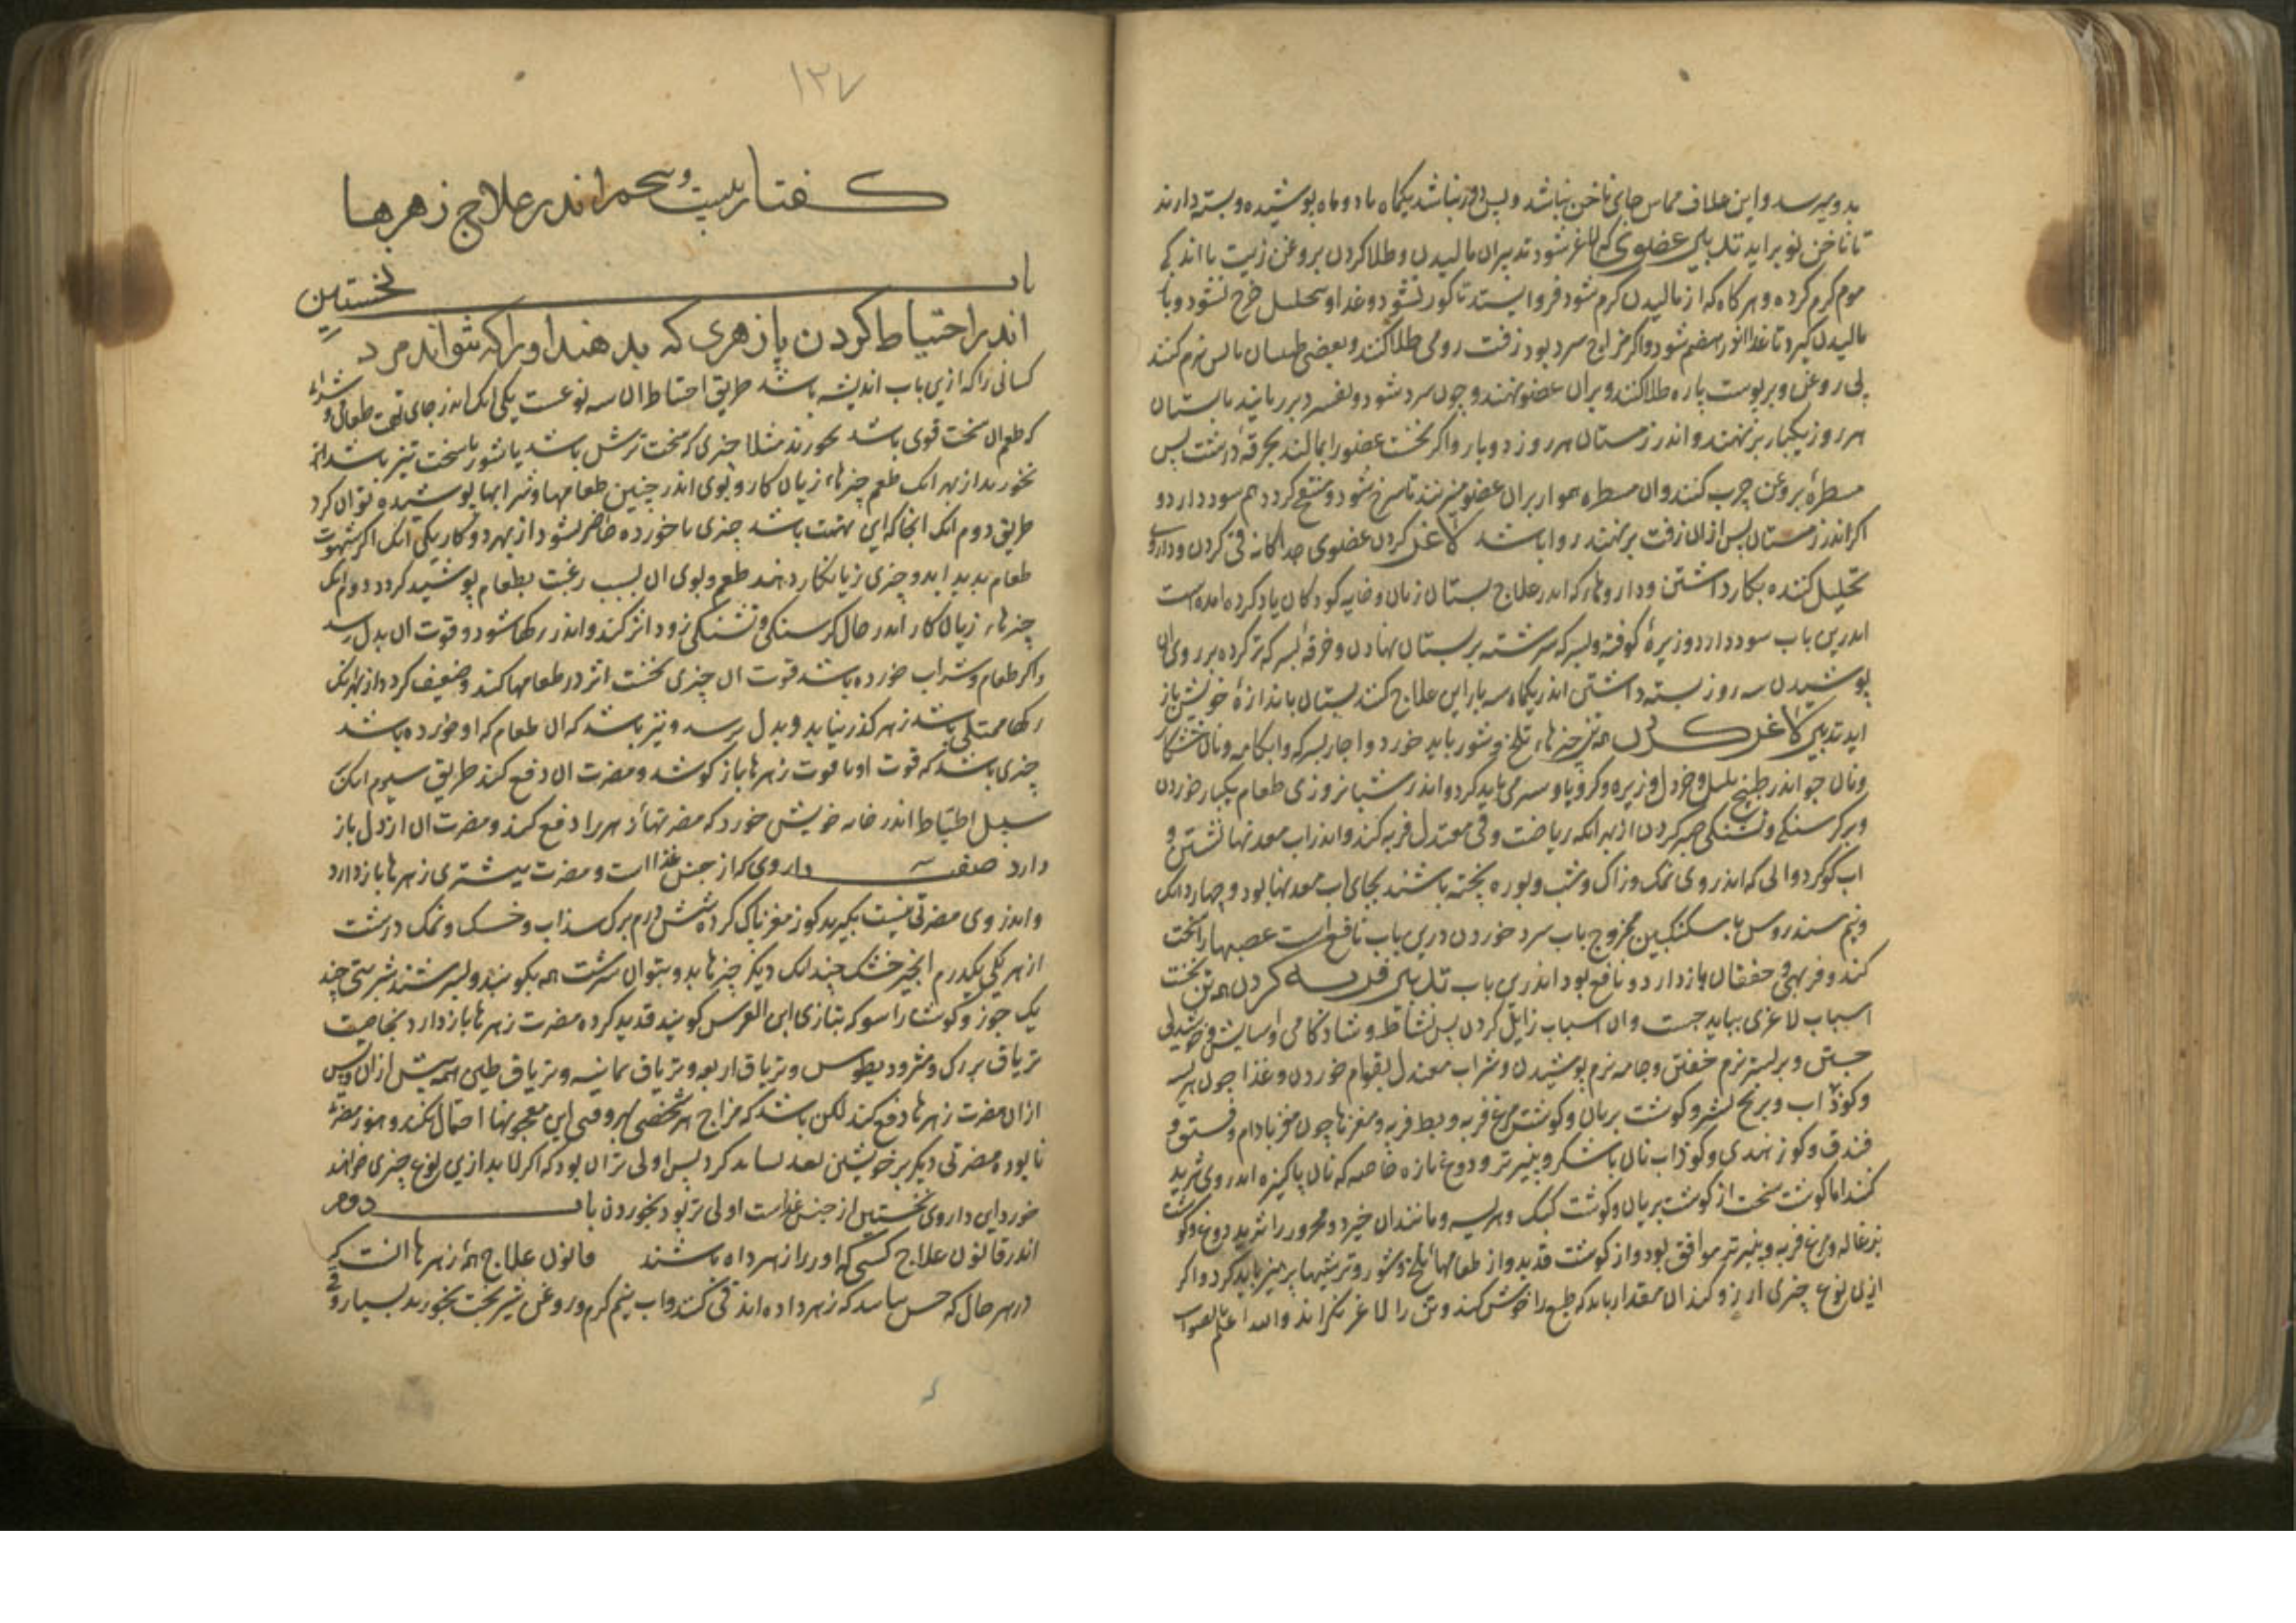 بدو میرسد و این غلاف مماس جای ناخن نباشد و پس دور نباشد یکماه یا دو ماه پوشیده و بسته دارند
تا ناخن نو براید تدبیر عضوی که لاغر شود تدبیر ان مالیدن و طلا کردن بروغن زیت با اندکی
موم کرم کرده و هر کاه که از مالیدن کرم شود فرو ایستد تا کور نشود و غدا او تحلیل خرج نشود و با
مالیدن کیرد تا غدا اندر هضم شود و اکر مزاج سرد بود زفت رومی طلا کنند و بعضی طبیبان نرم کنند
بی روغن و بر پوست پاره طلا کنند و بران عضو نهند و چون سرد شود و بفسرد بر ربایند تابستان
هر روز یکبار بر نهند و اندر زمستان هر روز دو بار و اکر نخست عضو را بمالند بخرقه درشت پس
مسطره بروغن چرب کنند و ان مسطره هموار بران عضو میزنند تا سرخ شود و منتفخ کردد هم سود دارد و
اکر اندر زمستان پس از ان زفت بر نهند روا باشد لاغر کردن عضوی جداکانه قی کردن و داروی
تحلیل کننده بکار داشتن و داروها که اندر علاج پستان زنان و خایه کودکان یاد کرده امده است
اندرین باب سود دارد و زیره کوفته و بسرکه سرشته بر پستان نهادن و خرقه بسرکه تر کرده بر روی ان
پوشیدن سه روز بسته داشتن اندر یکماه سه بار این علاج کنند پستان باندازه خویش باز
اید تدبیر لاغر کردن همه تن چیزهاء تلخ و شور باید خورد و اچار بسرکه و ابکامه و نان خشکار
و نان جو اندر طبیخ پلپل و خردل و زیره و کرویا و سیر می باید کرد و اندر شبانروزی طعام یکبار خوردن
و بر کرسنکی و تشنکی صبر کردن از بهر انکه ریاضت و قی معتدل فربه کند و اندر اب معدنها نشستن و
اب کوکرد و ابی که اندر وی نمک و زاک و شب و بوره پخته باشند بجای اب معدنها بود و چهار دانک
و نیم سندروس با سکنکبین ممزوج باب سرد خوردن درین باب نافع است عصبها را سخت
کند و فربهی و خفقان باز دارد و نافع بود اندرین باب تدبیر فربه کردن همه تن نخست
اسباب لاغری بباید جست و ان اسباب زایل کردن پس نشاط و شادکامی و اسایش و خوشدلی
جستن و بر بستر نرم خفتن و جامه نرم پوشیدن و شراب معتدل بقوام خوردن و غذا چون هریسه
و کوذاب و برنج بشیر و کوشت بریان و کوشت مرغ فربه و بط فربه و مغزها چون مغز بادام و فستق و
فندق و کوز هندی و کوذاب نان با شکر و پنیر تر و دوغ تازه خاصه که نان پاکیزه اندر وی ثرید
کنند اما کوشت سخت از کوشت بریان و کوشت کبک و هریسه و مانند ان خیزد و محرور را ثرید دوغ و کوشت
بزغاله و مرغ فربه و پنیر تر موافق بود و از کوشت قدید و از طعامهاء تلخ و شور و ترشیها پرهیز باید کرد و اکر
ازین نوع چیزی ارزو کند ان مقدار باید که طبع را خوش کند و تن را لاغر نکراند و الله اعلم بالصواب
١٢٧
کفتار بیست و پنجم اندر علاج زهرها
باب نخستین
اندر احتیاط کردن یا زهری که بدهند او را که نتواند مرد
کسانی را که ازین باب اندیشه باشد طریق احتیاط ان سه نوعست یکی انک اندر جای تهمت طعامی و شرابی
که طعم ان سخت قوی باشد نخورند مثلا چیزی که سخت ترش باشد یا شور یا سخت تیز باشد
نخورند از بهر انک طعم چیزهاء زیان کار و بوی اندر چنین طعامها و شرابها پوشیده توان کرد
طریق دوم انک انجا که این تهمت باشد چیزی ناخورده حاضر نشود از بهر دو کار یکی انک اکر شهوت
طعام بدید اید و چیزی زیانکار دهند طعم و بوی ان بسبب رغبت بطعام پوشیده کردد دوم انک
چیزهاء زیان کار اندر حال کرسنکی و تشنکی زود اثر کند و اندر رکها شود و قوت ان بدل رسد
و اکر طعام و شراب خورده باشد قوت ان چیزی نخست اثر در طعامها کند و ضعیف کردد از بهر انک
رکها ممتلی باشد زهر کذر نیابد و بدل نرسد و نیز باشد که ان طعام که او خورده باشد
چیزی باشد که قوت او با قوت زهرها باز کوشد و مضرت ان دفع کند طریق سیوم انک
سبیل احتیاط اندر خانه خویش خورد که مضرتهاء زهر را دفع کند و مضرت ان از دل باز
دارد صفت داروی که از جنس غذا است و مضرت بیشتری زهرها باز دارد
و اندر وی مضرتی نیست بکیرید کوز مغز پاک کرده شش درم برک سذاب و خسک و نمک درشت
از هر یکی یکدرم انجیر خشک چندانک دیکر چیزها بدو بتوان سرشت همه بکوبند و بسرشند شربتی چند
یک جوز و کوشت راسو که بتازی ابن العرس کویند قدید کرده مضرت زهرها باز دارد بخاصیت
تریاق بزرک و مثرودیطوس و تریاق اربعه و تریاق ثمانیه و تریاق طین همه پیش از ان و پس
از ان مضرت زهرها دفع کند لکن باشد که مزاج هر شخصی بهر وقتی این معجونها احتمال نکند و هنوز مضرت
نابوده مضرتی دیکر بر خویشتن نقد نباید کرد پس اولی تر ان بود که اکر لابد ازین نوع چیزی خواهند
خورد این داروی نخستین از جنس غذاست اولی تر بود بخوردن باب دوم
اندر قانون علاج کسی که او را زهر داده باشند قانون علاج همه زهرها انست که
در هر حال که حس بیابند که زهر داده اند قی کنند و اب نیم کرم و روغن شیر بخت بخورند بسیار و قی